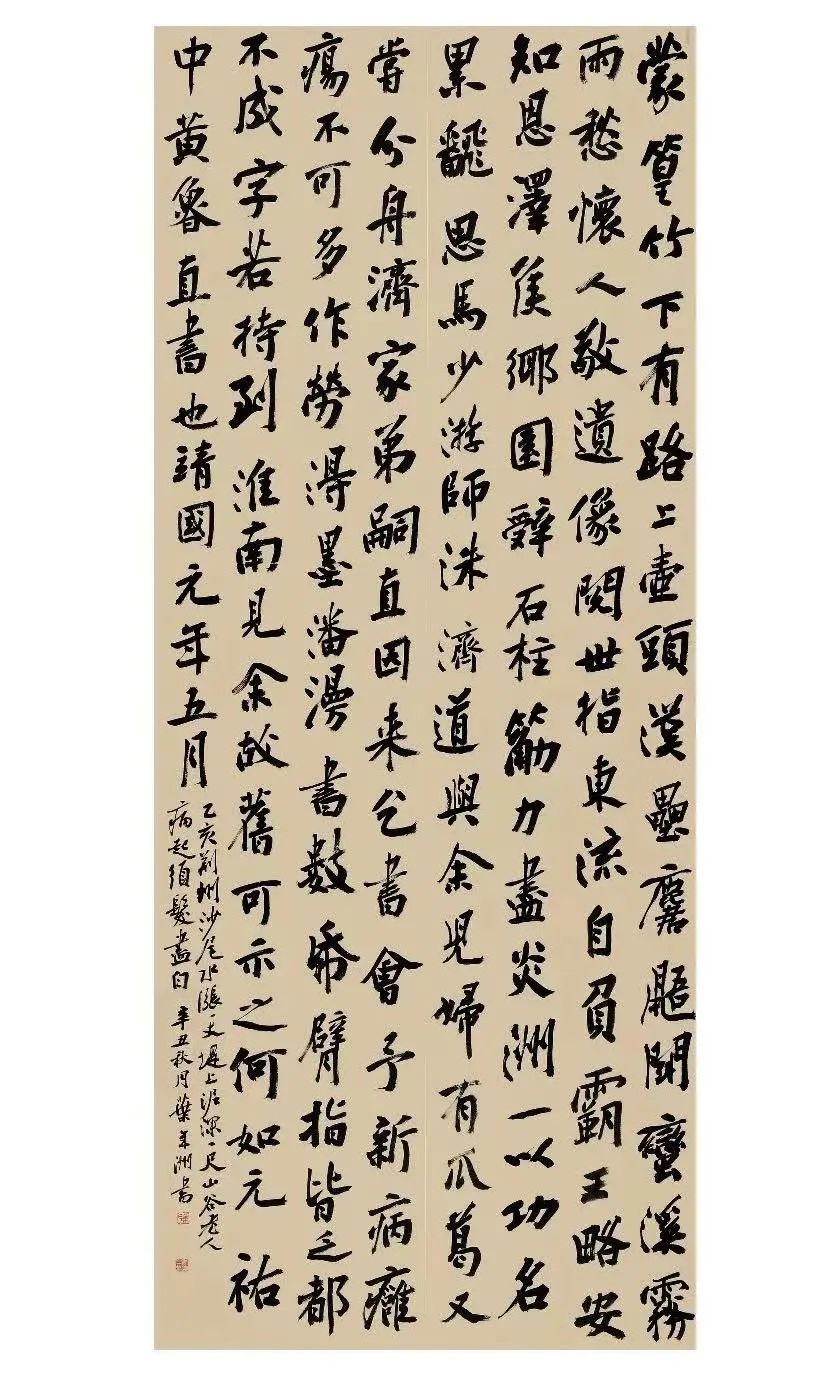 蒙篁竹下有路上壺頭漢壘麏鼯鬪蠻溪霧
雨愁懷人敬遺像閱世指東流自負霸王略安
知恩澤侯鄉園辭石柱筋力盡炎洲一以功名
累飜思馬少游師洙濟道與余兒婦有瓜葛又
嘗分舟濟家弟嗣直因来乞書會予新病癰
瘍不可多作勞得墨潘漫書數帋臂指皆乏都
不成字若持到淮南見余故舊可示之何如元祐
中黄魯直書也請國元年五月
乙亥荆州沙尾水漲一丈堤上泥深一尺山谷老人
病起須髮盡白 辛丑秋月葉年洲書